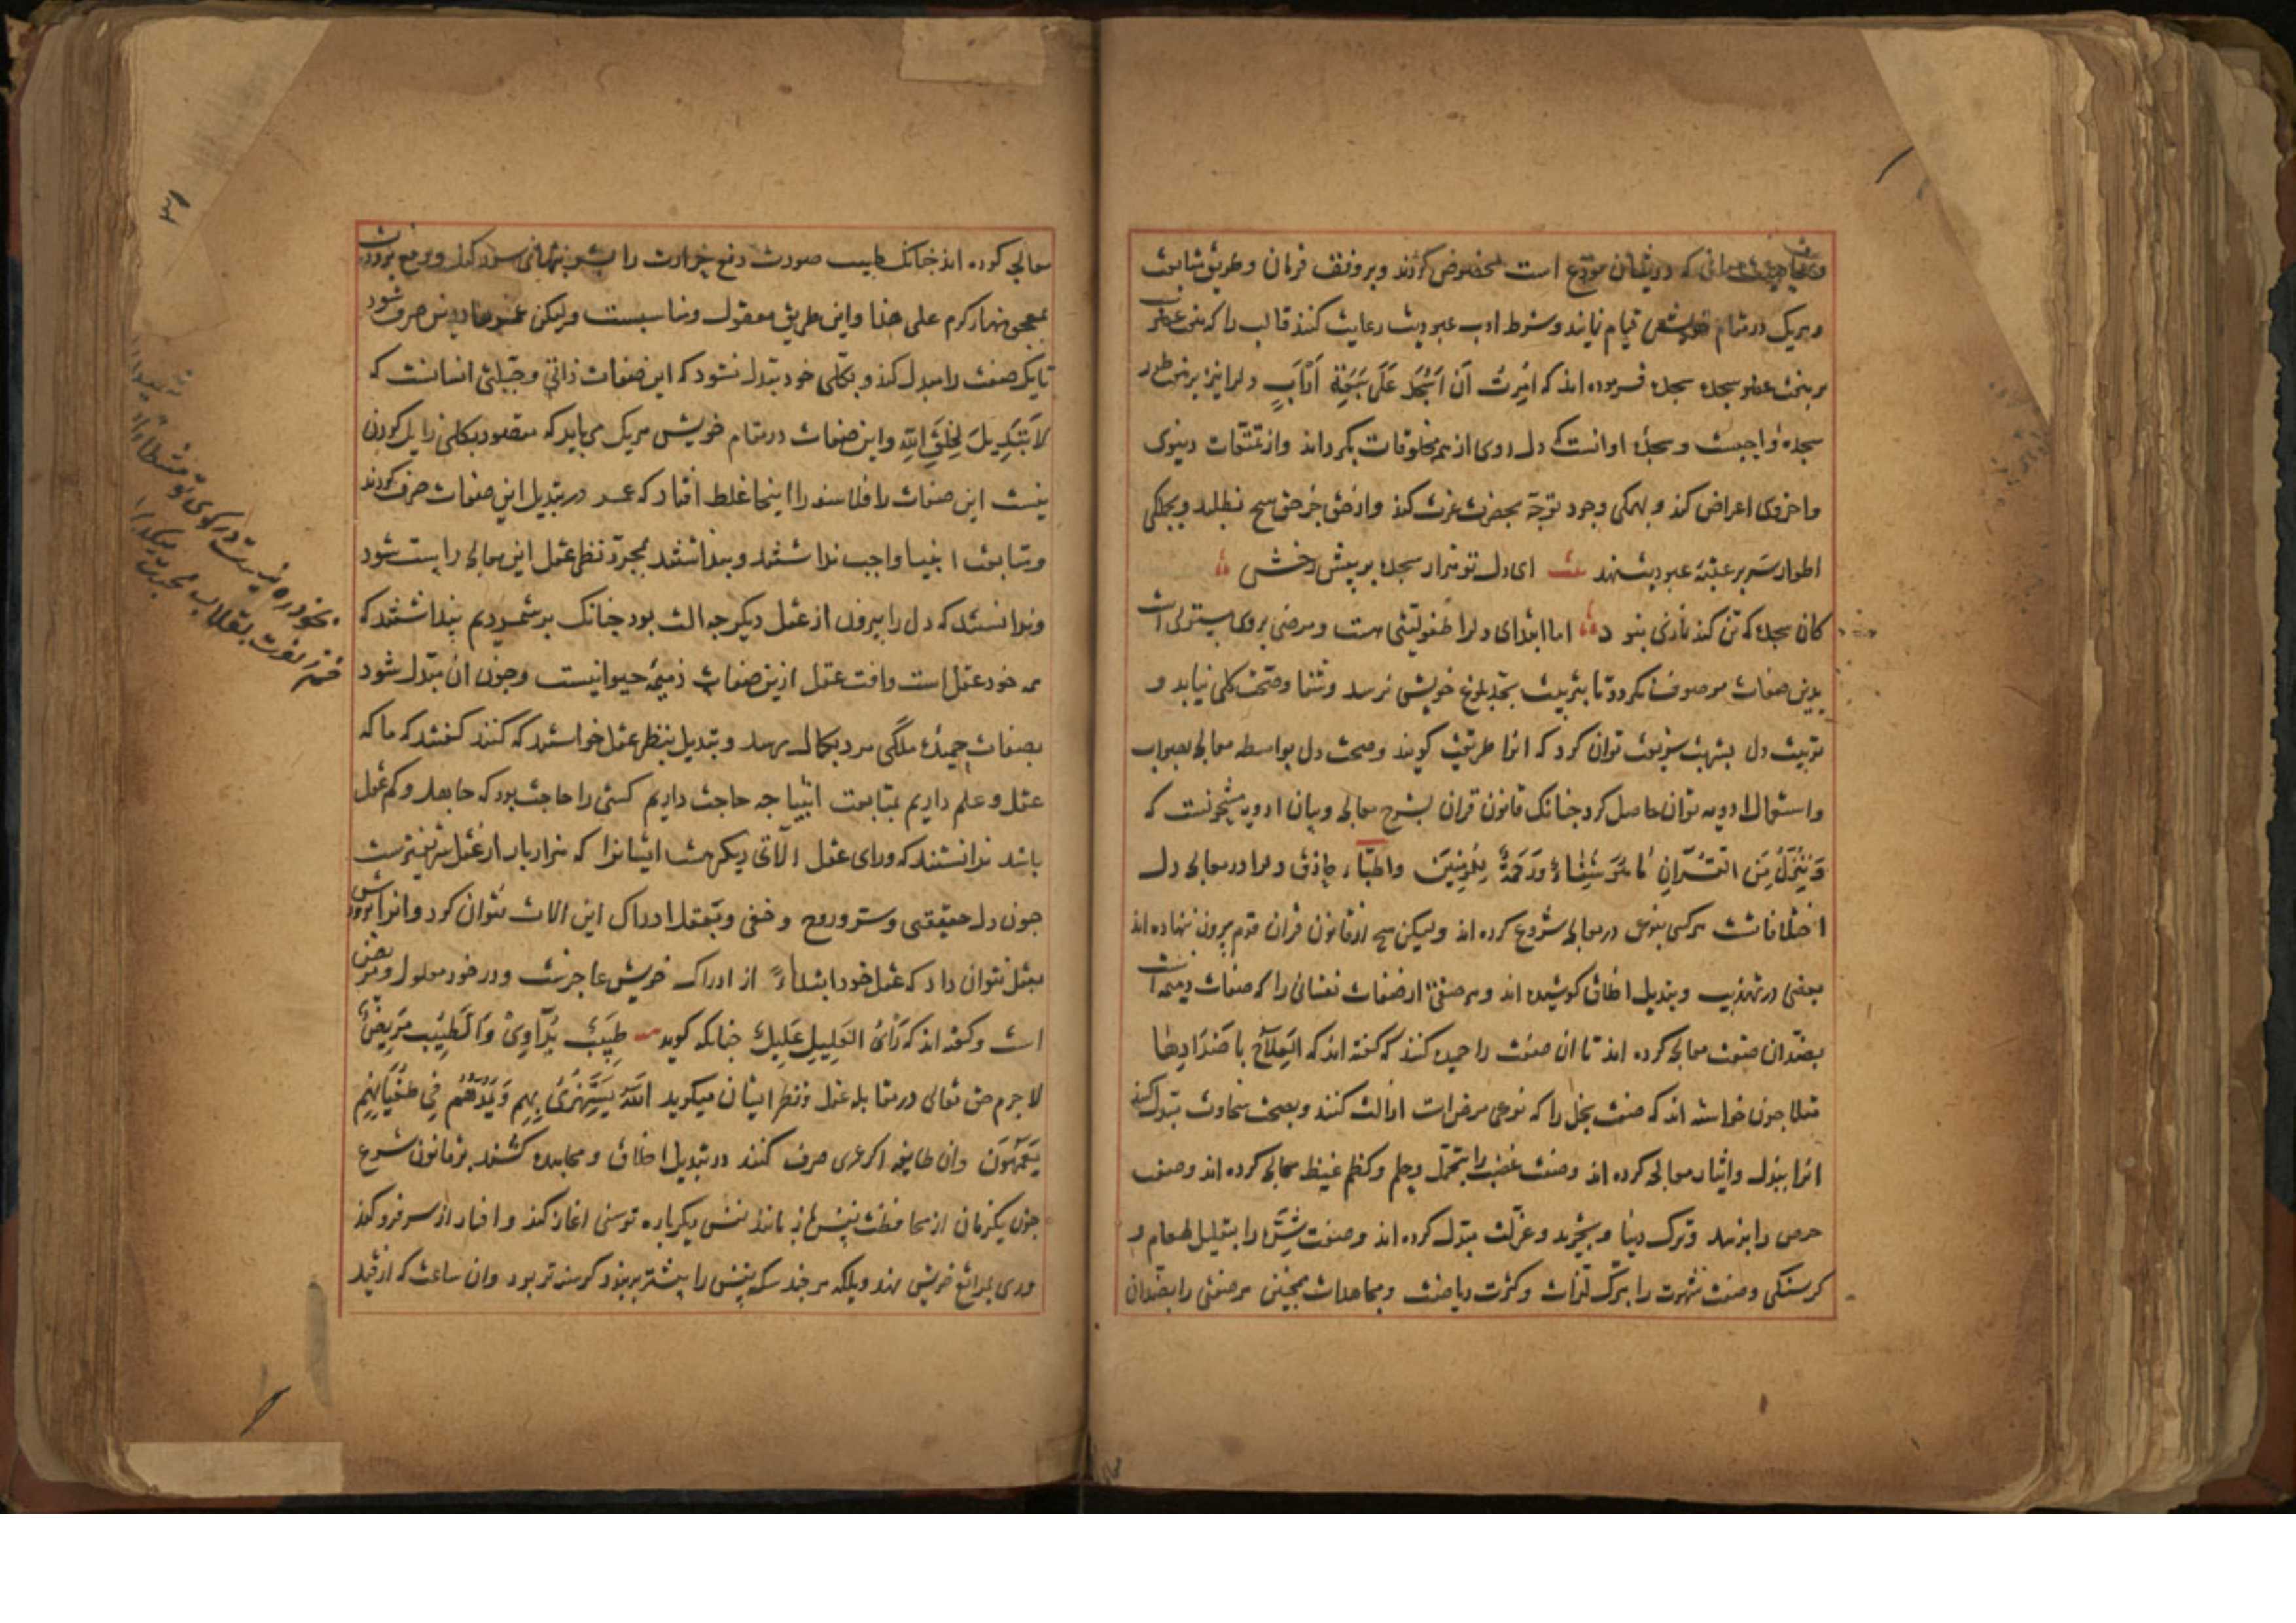 و بخاصیت معانی که دریشان مودع است مخصوص کردند و بر وفق فرمان و طریق متابعت
و هریک در مقام خویش قیام نمایند و شرط ادب عبودیت رعایت کنند قالب را که هفت عضو
بر هفت عضو سجده سجده فرموده اند که اُمِرتُ اَن اَسجُدَ عَلَی سَبعَةِ آرَابٍ و دلرا نیز برین طور
سجدهٔ واجبست و سجدهٔ او انست که دل روی از همه مخلوقات بگرداند و از تمتعات دنیوی
و اخروی اعراض کند و بهمگی وجود توجه بحضرت عزت کند و از حق جز حق هیچ نطلبد و بجملگی
اطوار سر بر عتبهٔ عبودیت نهد بیت ای دل تو هزار سجده بر پیش رخش
کان سجده که تن کند نمازی نبود اما ابتدای دلرا طفولیتی هست و مرضی بروی مستولی است
بدین صفات موصوف نگردد تا بتربیت بحد بلوغ خویش نرسد و شفا و صحت کلی نیابد و
تربیت دل بشربت شریعت توان کرد که انرا طریقت گویند و صحت دل بواسطه معالجه بصواب
و استعمال ادویه توان حاصل کرد چنانک قانون قران بشرح معالجه و بیان ادویه مشحونست که
وَنُنَزِّلُ مِنَ القُرآنِ مَا هُوَ شِفَاءٌ وَرَحمَةٌ لِلمُؤمِنِینَ و اطبّاء حاذق دلرا در معالجه دل
اختلافاتست هرکسی بنوعی در معالجه شروع کرده اند ولیکن هیچ از قانون قران قدم بیرون ننهاده اند
بعضی در تهذیب و تبدیل اخلاق کوشیده اند و هر صفتی از صفات نفسانی را که صفات ذمیمه است
بضد ان صفت معالجه کرده اند تا ان صفت را حمیده کنند که گفته اند که اَلعِلاجُ بِاَضدَادِهَا
مثلا چون خواسته اند که صفت بخل را که نوعی مرض است ازالت کنند و بصحت سخاوت مبدل کنند
انرا ببذل و ایثار معالجه کرده اند و صفت غضب را بتحمل و حلم و کظم غیظ معالجه کرده اند و صفت
حرص را بزهد و ترک دنیا و تجرید و عزلت مبدل کرده اند و صفت شره را بتقلیل طعام و
گرسنگی و صفت شهوت را بترک لذات و کثرت ریاضت و مجاهدات همچنین هر صفتی را بضد ان
معالجه کرده اند چنانک طبیب صورت دفع حرارت را
علی هذا و این طریق معقول و مناسبست ولیکن عمرها درین صرف شود
تا یک صفت را مبدل کند و بکلی خود مبدل نشود که این صفات ذاتی و جبلتی انسانست که
لَا تَبدِیلَ لِخَلقِ اللهِ و این صفات در مقام خویش هریک می باید که مقصود بکلی زایل کردن
نیست این صفات را فلاسفه را اینجا غلط افتاد که عمر در تبدیل این صفات صرف کردند
و متابعت انبیا واجب نداشتند و پنداشتند بمجرد نظر عقل این معالجه راست شود
و ندانستند که دل را بیرون از عقل دیگر چه الت بود چنانک بر شمردیم پنداشتند که
همه خود عقل است و افت عقل ازین صفات ذمیمهٔ حیوانیست و چون ان مبدل شود
بصفات حمیدهٔ ملکی مرد بکمال رسد و تبدیل بنظر عقل خواستند که کنند گفتند که ما که
عقل و علم داریم بمتابعت انبیا چه حاجت داریم کسی را حاجت بود که جاهل و کم عقل
باشد ندانستند که ورای عقل الاتی دیگر هست ایشانرا که هزار بار از عقل شریفترست
چون دل حقیقی و سر و روح و خفی و بعقل ادراک این الات نتوان کرد و انرا پرورش
بعقل نتوان داد که عقل خود ابتداءً از ادراک خویش عاجزست و در خود معلول و مریض
است و گفته اند که رَأیُ العَلِیلِ عَلِیلٌ چنانکه گوید طَبِیبٌ یُدَاوِی وَالطَّبِیبُ مَرِیضٌ
لا جرم حق تعالی در مقابله عقل و نظر ایشان میگوید اَللّٰهُ یَستَهزِئُ بِهِم وَیَمُدُّهُم فِی طُغیَانِهِم
یَعمَهُونَ و ان طایفه اگر عمری صرف کنند در تبدیل اخلاق و مجاهده کشند بر قانون شرع
چون یکزمان از محافظت نفس باز مانند نفس دیگرباره توسنی اغاز کند و افسار از سر فرو کند
و روی بمراتع خویش نهد و بلکه هرچند سگ نفس را بیشتر بربندد گرسنه تر بود و ان ساعت که از قید